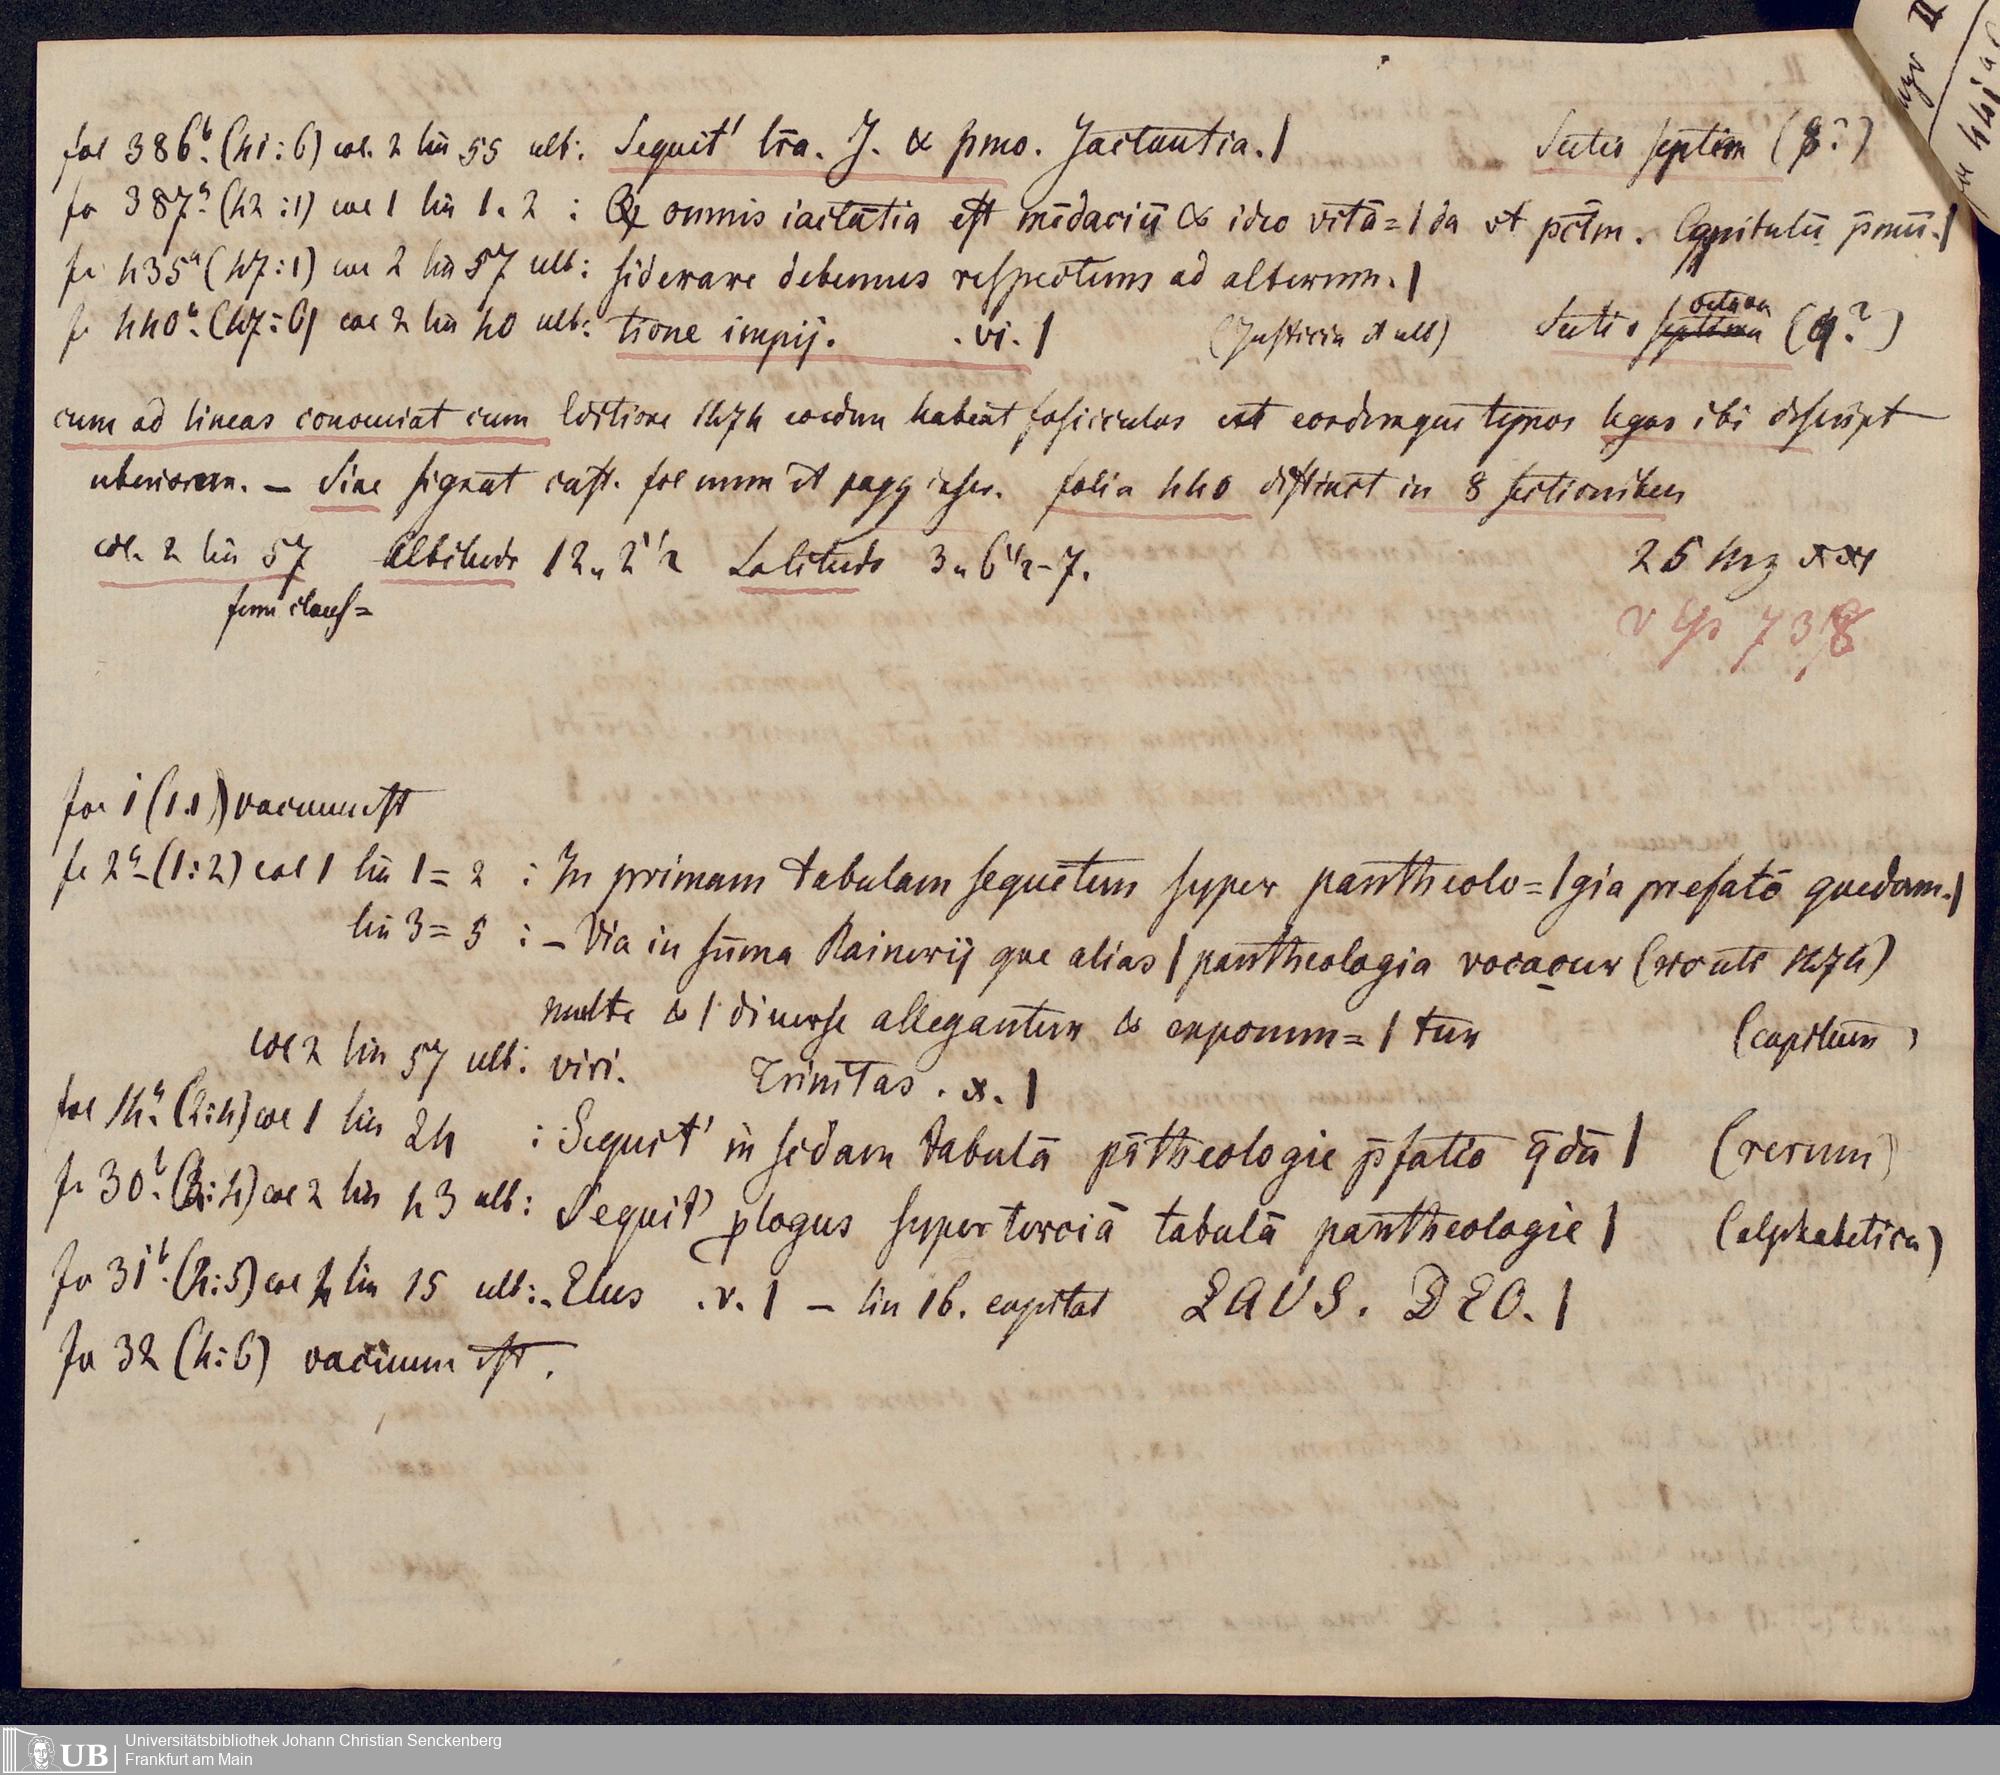 fol 386b. (41:6) col. 2 lin 55 ult: Sequit' lr̄a. J. & pmo. Jactantia. | Sectio septem (8?)
fo 387a. (42:1) col 1 lin 1. 2 : Q omnis iactātia est mēdaciū & ideo vitā= | da vt pctm̄. Capitulū pmū. |
fo 435a (47:1) col 2 lin 57 ult: siderare debemus respectum ad alterum. |
fo 440b. (47:6) col 2 lin 40 ult: tione impij. .vi. | (Justicia et ult) Sectio septima octava (9?)
cum ad lineas conveniat cum Editione 1474 eosdem habeat fasciculos et eosdemque typos legas ibi descript
uberiorem. – Sine signat cust. fol num et pagg inscr. folia 440 distinct in 8 sectionibus
col. 2 lin 57 Altitudo 12„ 2 1/2 Latitudo 3„ 6 1/2 – 7. 25 Mz
fenu clauss=
v 738
fol 1 (1:1) vacuum est
fo 2a (1:2) col 1 lin 1=2 : In primam tabulam sequētem super pantheolo= | gia prefatō quedam. |
lin 3=5 : – Via in sūma Rainerij que alias | pantheologia vocatur (1474)
multe & | diuerse allegantur & exponun= | tur (capitum)
col 2 lin 57 ult: viri. Trinitas . x. |
fol 14a. (2:4) col 1 lin 24 : Sequit' in scdam tabulā pātheologie p̄fatio q̄dā | (rerum)
fo 30b. (4) col 2 lin 43 ult: Sequit' plogus super terciā tabulā pantheologie | (alphabetica)
fo 31b. (4:5) col 2 lin 15 ult: . Elus .v. | – lin 16. capital LAVS. DEO. |
fo 32 (4:6) vacuum est.
UB
Universitätsbibliothek Johann Christian Senckenberg
Frankfurt am Main